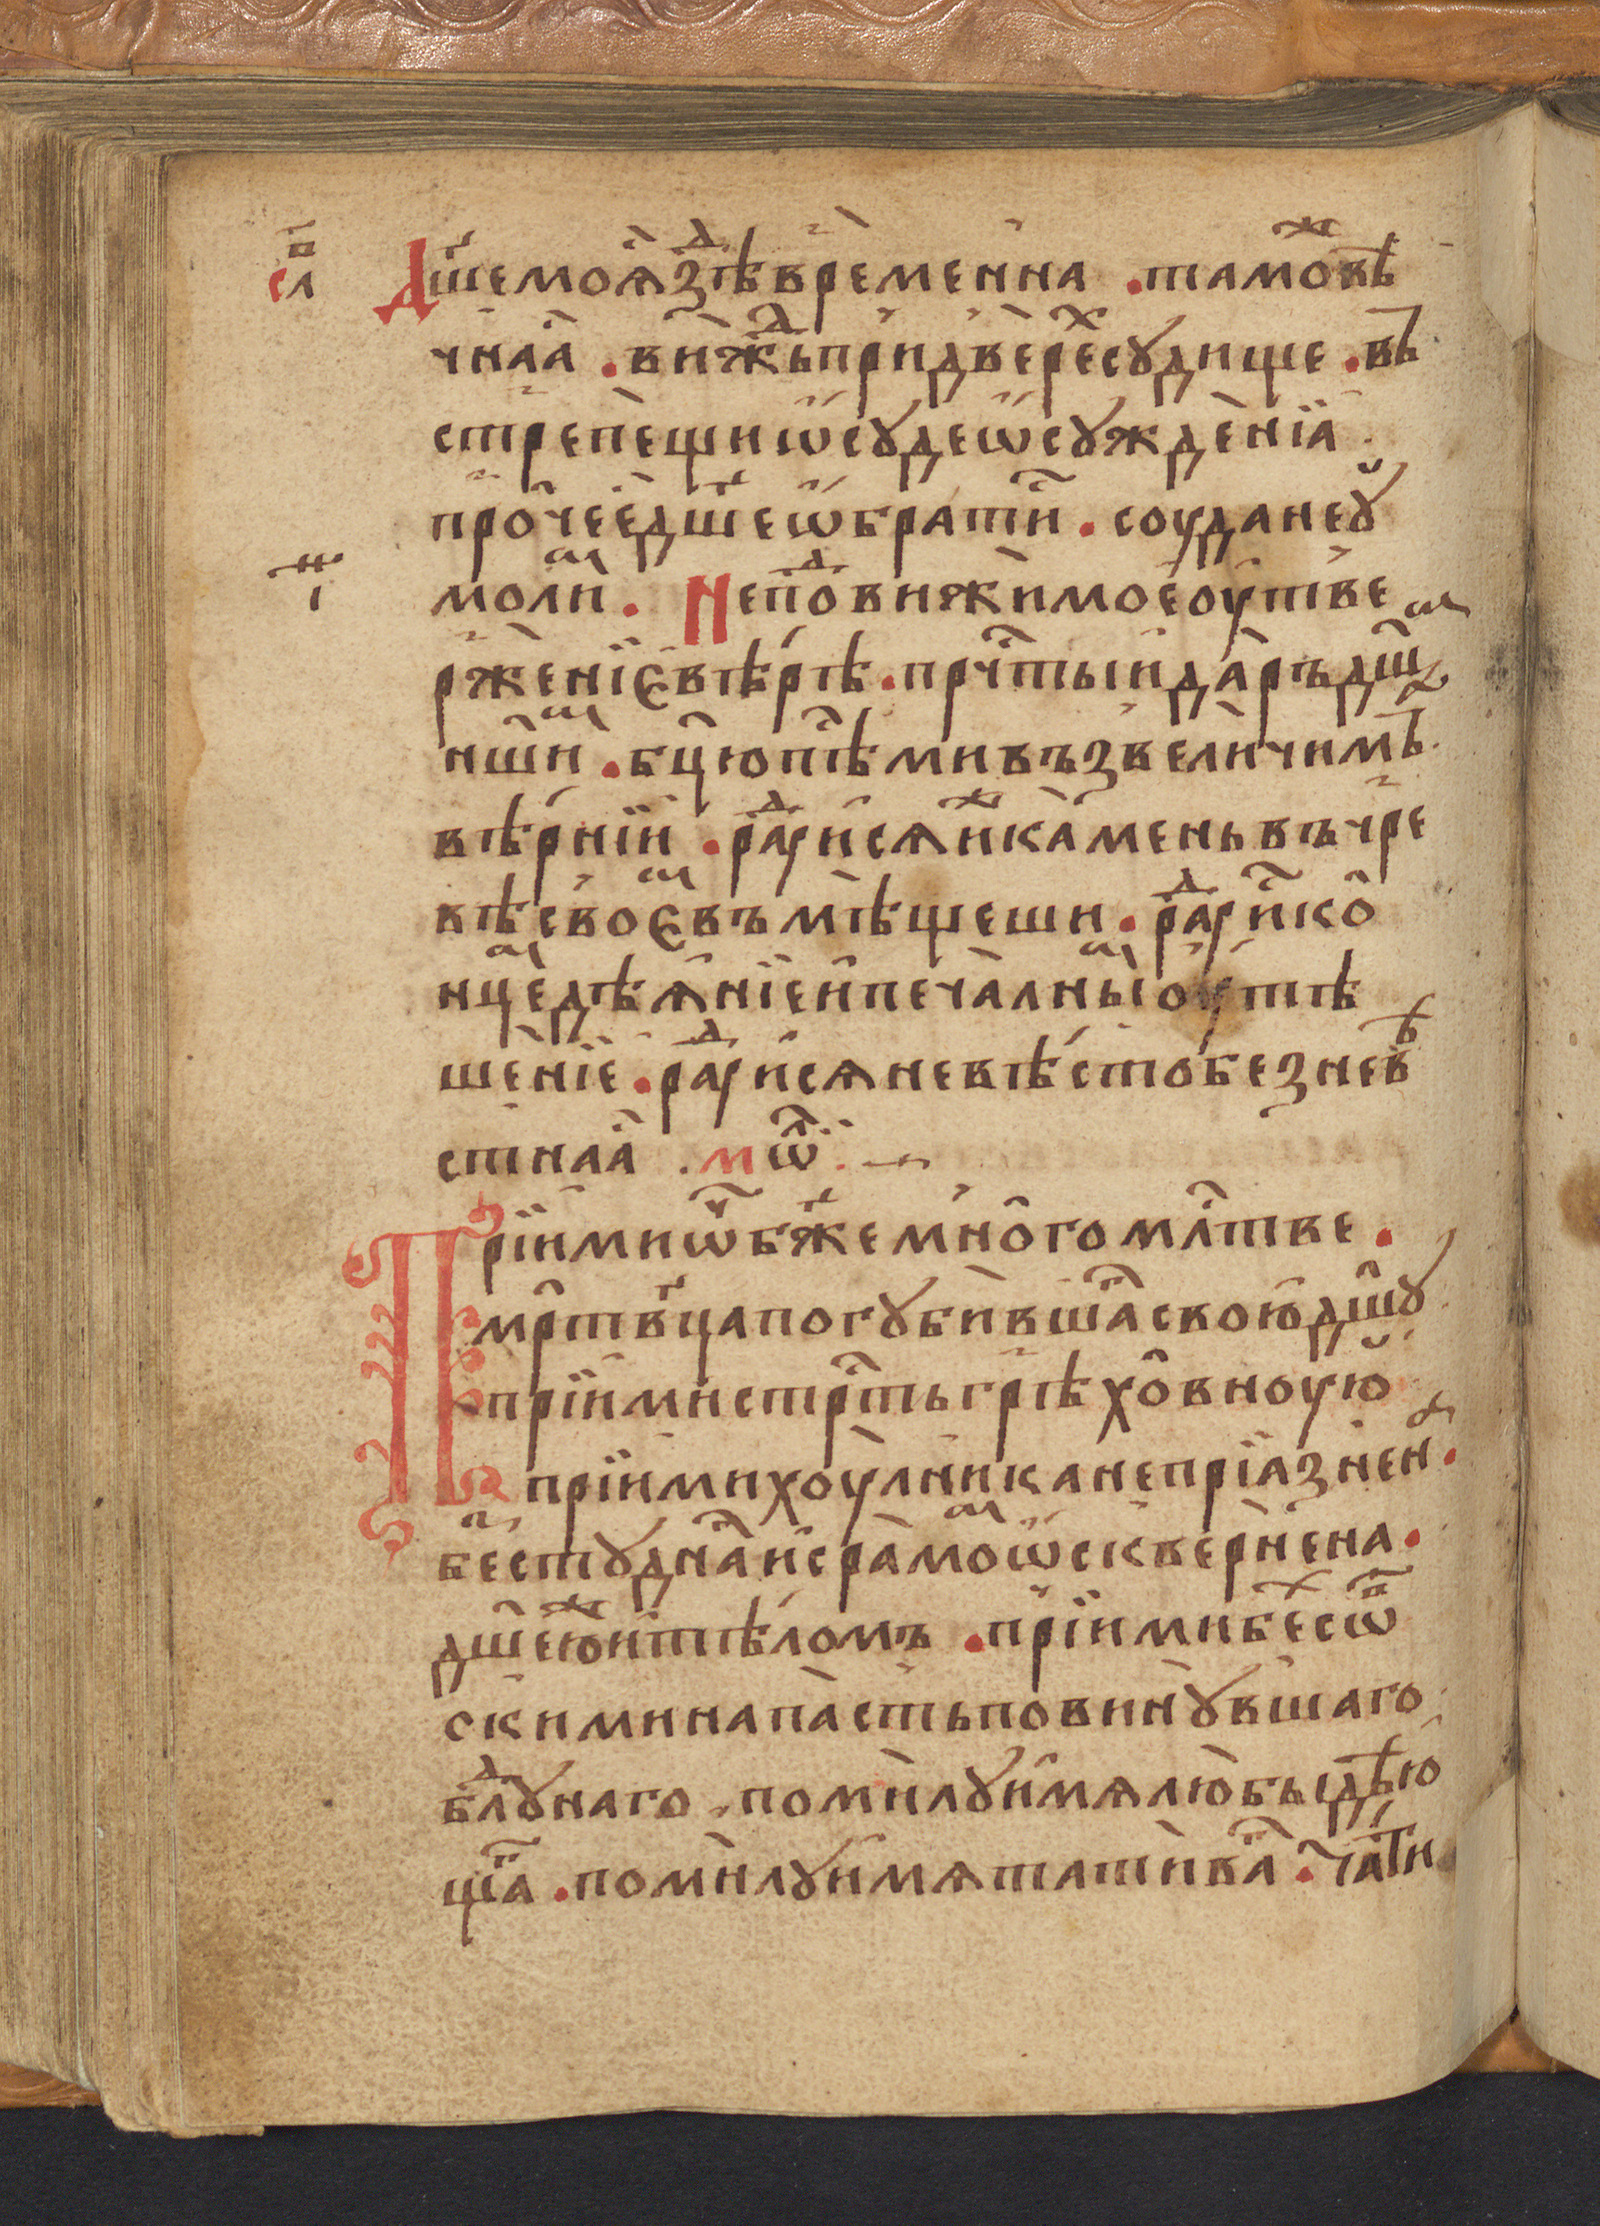 сп҃л Дш҃е моѧ́ здѣ вре́менна . тамо́ же вѣ
чнаа̀ . ви́ждь при две́рехъ сꙋдище . въ
стрепещи ѡ҆ сꙋде ѡ҆сꙋжде́нїа .
про́чее є҆ дш҃е ѡ҆брати́ . соуда не ꙋ҆
ті моли . Неподви́жимое оу҆тве
рже́нїе вѣ́рѣ . прⷭ҇тыи да́ръ дш҃а
ши . бц҃ю пѣ́сми възвели́чимъ
вѣ́рнїи . ра́дꙋисѧ и҆же ка́мень въ чре
вѣ свое вмѣщеши . ра́дꙋи ко
нцем дѣѧ́нїе и҆ печа́лным оу҆тѣ
ше́нїе . ра́дꙋисѧ невѣ́сто безневѣ
стнаа̀ . м҃ѡл .
Прїими ѡч҃е бж҃е мно́гомлⷭ҇тве .
мр҃твца погꙋби́вшаго свою̀ дш҃ꙋ
прїими стрⷭ҇ть грѣхо́вноую
прїими хоу́лника непрїа́знена .
бестꙋднаго и҆ сра́мом ѡ҆скверне́на .
дш҃ею же и҆ тѣ́ломъ . прїими бесѡ́в
скими напасть повинꙋ́вшаго
блꙋ́днаго . поми́лꙋи мѧ любы дѣю
щаго . поми́лꙋи мѧ тати́ва . ча́ти